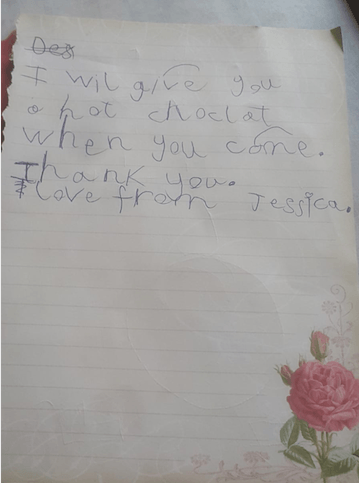 Des
I wil give you
a hot choclat
when you come.
Thank you.
love from Jessica.